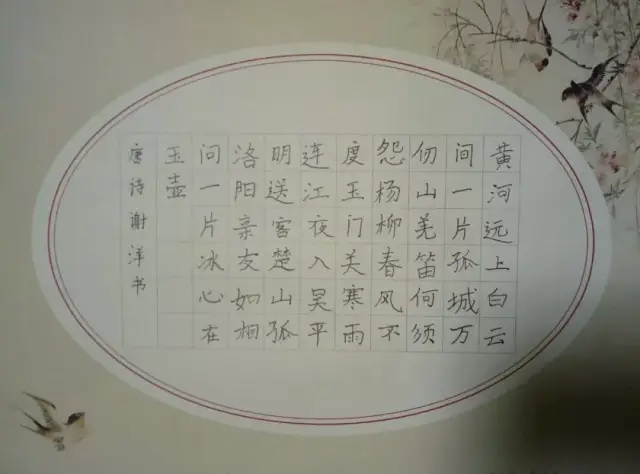 黄河远上白云
间一片孤城万
仞山羌笛何须
怨杨柳春风不
度玉门关寒雨
连江夜入吴平
明送客楚山孤
洛阳亲友如相
问一片冰心在
玉壶
唐诗谢洋书